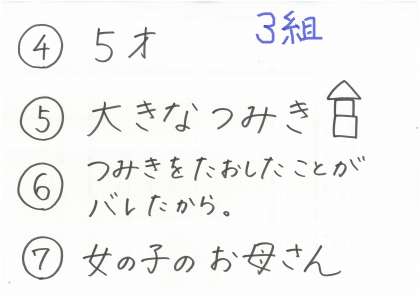 3組
④ 5才
⑤ 大きなつみき
⑥ つみきをたおしたことが
バレたから。
⑦ 女の子のお母さん